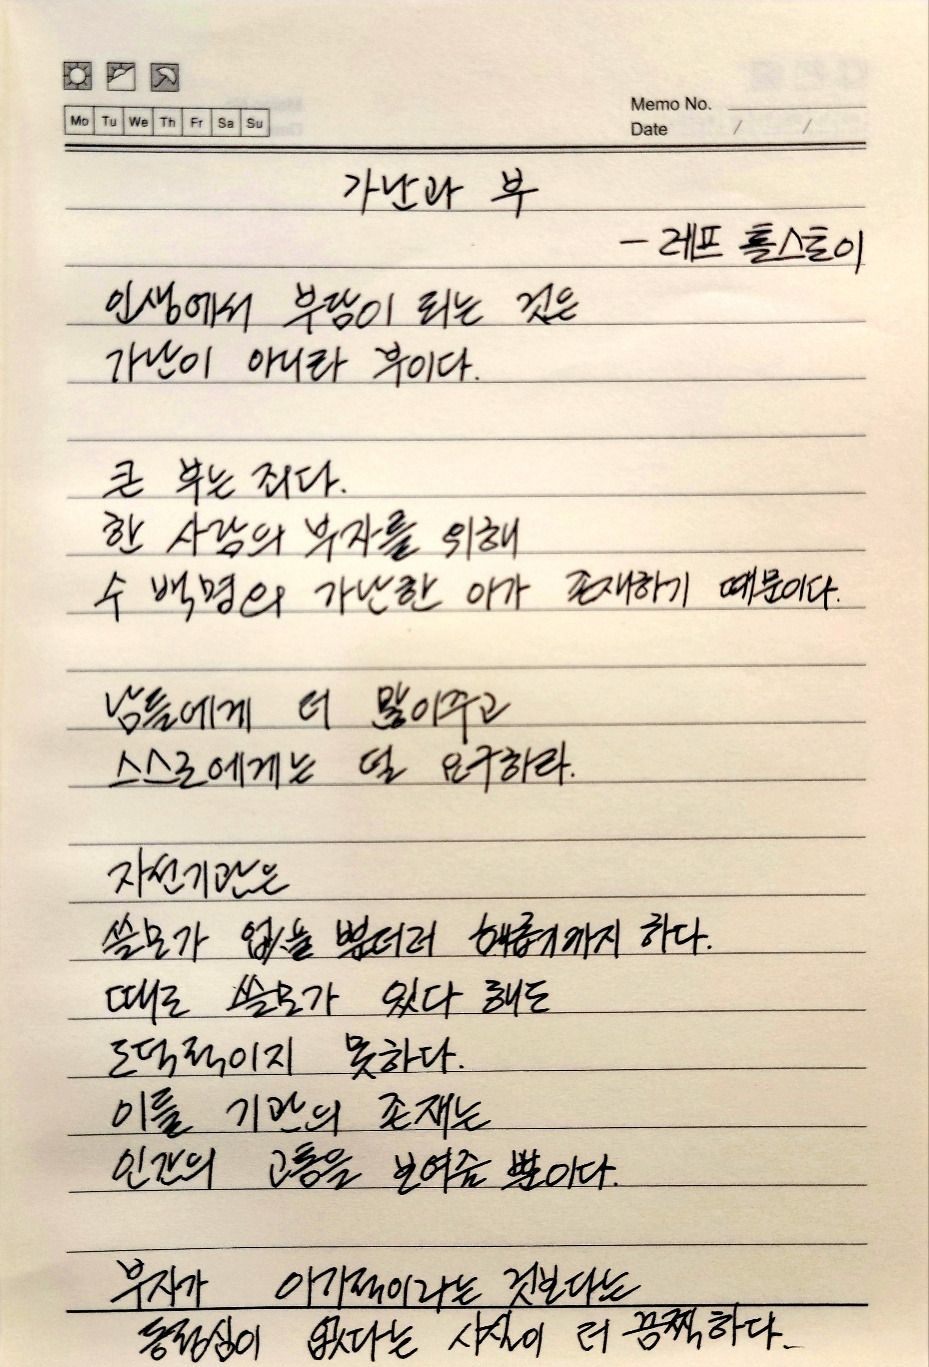 Mo Tu We Th Fr Sa Su
Memo No.
Date / /
가난과 부
- 레프 톨스토이
인생에서 부담이 되는 것은
가난이 아니라 부이다.
큰 부는 죄다.
한 사람의 부자를 위해
수 백명의 가난한 이가 존재하기 때문이다.
남들에게 더 많이주고
스스로에게는 덜 요구하라.
자선기관은
쓸모가 없을 뿐더러 해롭기까지 하다.
때로 쓸모가 있다 해도
도덕적이지 못하다.
이들 기관의 존재는
인간의 고통을 보여줌 뿐이다.
부자가 이기적이라는 것보다는
동정심이 없다는 사실이 더 끔찍하다.